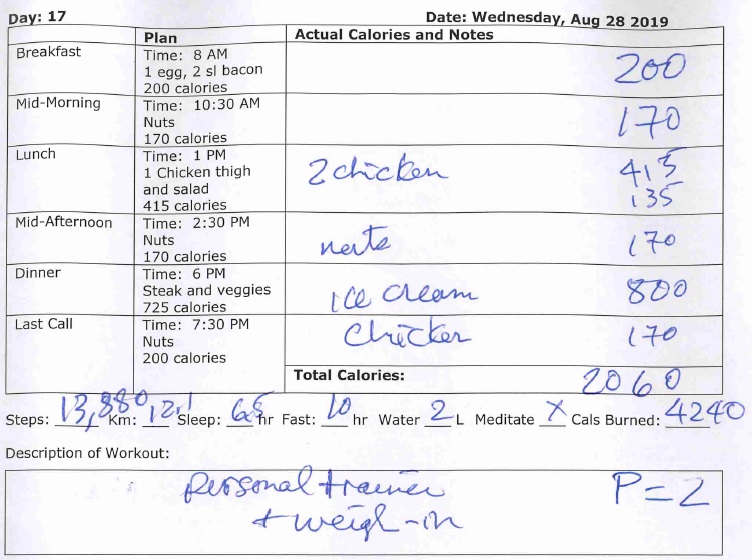 Day: 17 Date: Wednesday, Aug 28 2019
Plan Actual Calories and Notes
Breakfast Time: 8 AM
1 egg, 2 sl bacon
200 calories 200
Mid-Morning Time: 10:30 AM
Nuts
170 calories 170
Lunch Time: 1 PM
1 Chicken thigh 2 chicken 415
and salad
415 calories 135
Mid-Afternoon Time: 2:30 PM
Nuts nuts 170
170 calories
Dinner Time: 6 PM
Steak and veggies ice cream 800
725 calories
Last Call Time: 7:30 PM Chicken 170
Nuts
200 calories
Total Calories: 2060
Steps: 13,880 Km: 12.1 Sleep: 6.5 hr Fast: 10 hr Water 2 L Meditate X Cals Burned: 4240
Description of Workout:
personal trainer P=2
+ weigh-in